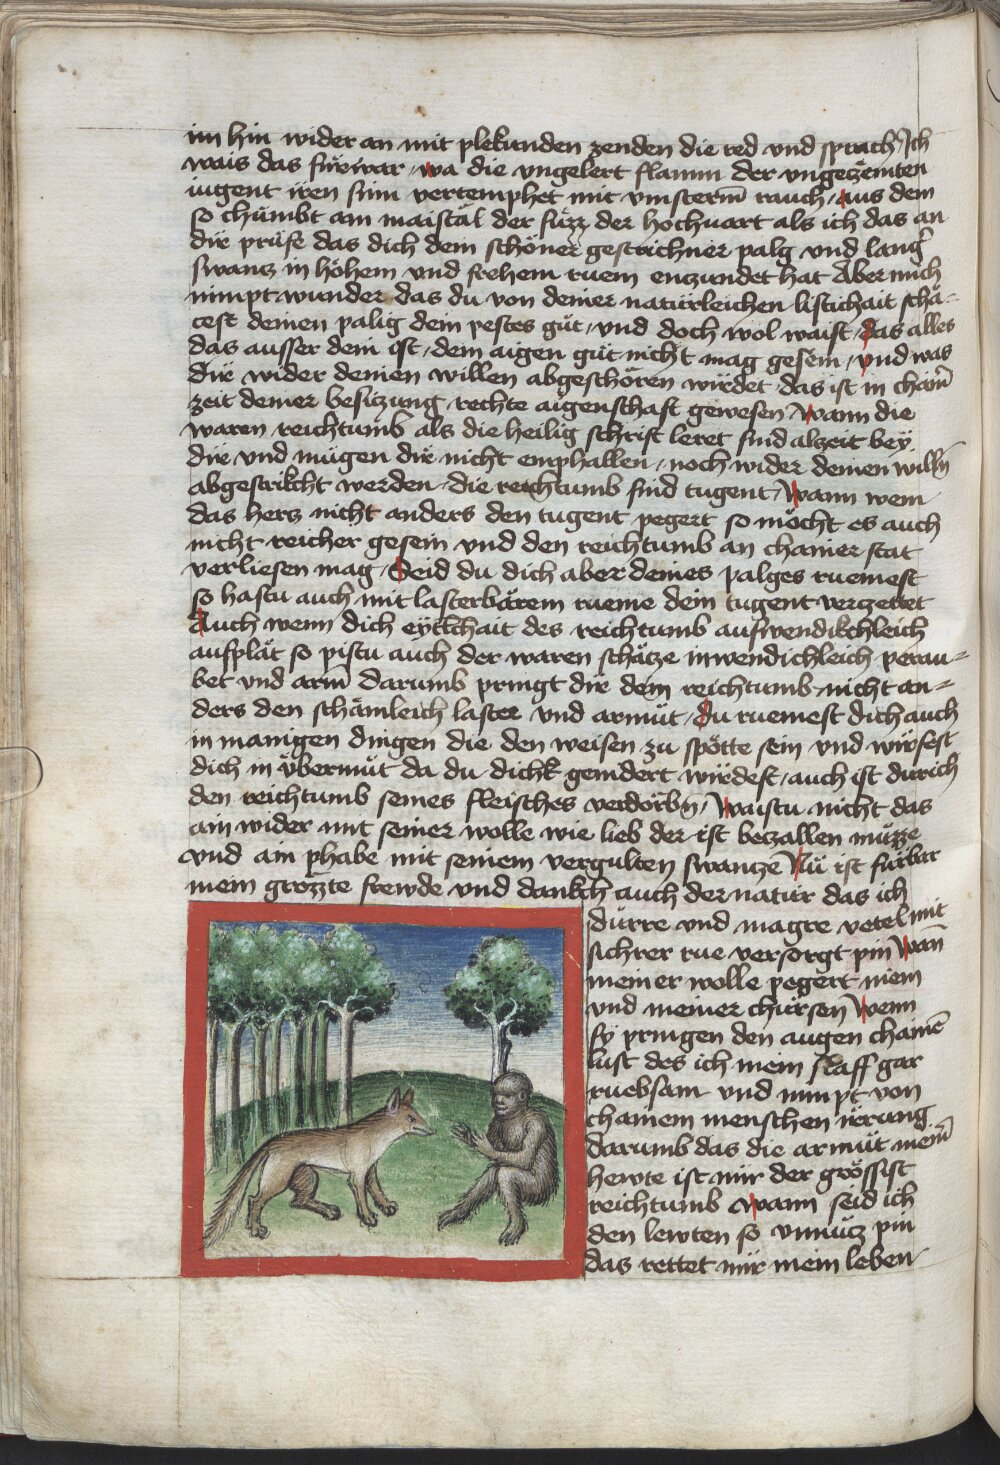 im hin wider an mit plekunden zenden die red vnd sprach Ich
wais das fürwar / wa die vngelert flamm der vngezëmten
iugent iren sinn vertemphet mit vinsterm̄ rauch / aus dem
so chümbt am maistäl der füzz der hochuart als ich das an
dir prüfe das dich dein schöner gestrichner palg vnd lang̛
swancz in höhem vnd frehem ruem enzundet hat Aber mich
nimpt wunder das du von deiner natürleichen listichait schä-
cest deinen palig dein pestes güt / vnd doch wol waist / das alles
das ausser dein ist / dem aigen güt nicht mag gesein / vnd was
dir wider deinen willen abgeschören würdet das ist in chain̄
zeit deiner besiczung rechte aigenschaft gewesen Wann die
waren reichtumb als die heilig schrift leret sind alzeit bey
dir vnd mügen dir nicht emphallen / noch wider deinen willn̄
abgestrikcht werden die reichtumb sind tugent / Wann wem
das hercz nicht anders den tugent pegert so möcht es auch
nicht reicher gesein vnd den reichtumb an chainer stat
verliesen mag / Seid du dich aber deines palges ruemest
so hastu auch mit lasterbärem rueme dein tugent verzettet
Auch wenn dich eytlchait des reichtumb auswendikchleich
aufplät so pistu auch der waren schätze inwendichleich perau-
bet vnd arm̄ darumb pringt dir dein reichtumb nicht an-
ders den schämleich laster vnd armüt / du ruemest dich auch
in manigen dingen die den weisen zu spötte sein vnd wirfest
dich in übermüt da du dichk gemdert würdest / auch ist durich
den reichtumb seines fleisches verdörbn̄ / Waistu nicht das
ain wider mit seiner wolle wie lieb der ist beczallen müzze
vnd ain phabe mit seinem vergulten swancze Nü ist fürbar
mein grozzte frewde vnd dankch auch der natür das ich
dürre vnd magre vetel mit
sichrer rue versorgt pin Wan̄
meiner wolle pegert niem
vnd meiner chürsen Wenn
sy pringen den augen chaine
lust des ich mein slaff gar
ruebsam vnd nimpt von
chainem menschen irrung
darumb das die armüt mein̄
hewte ist mir der grössist
reichtumb Wann seid ich
den lewten so vnnücz pin
das rettet mir mein leben